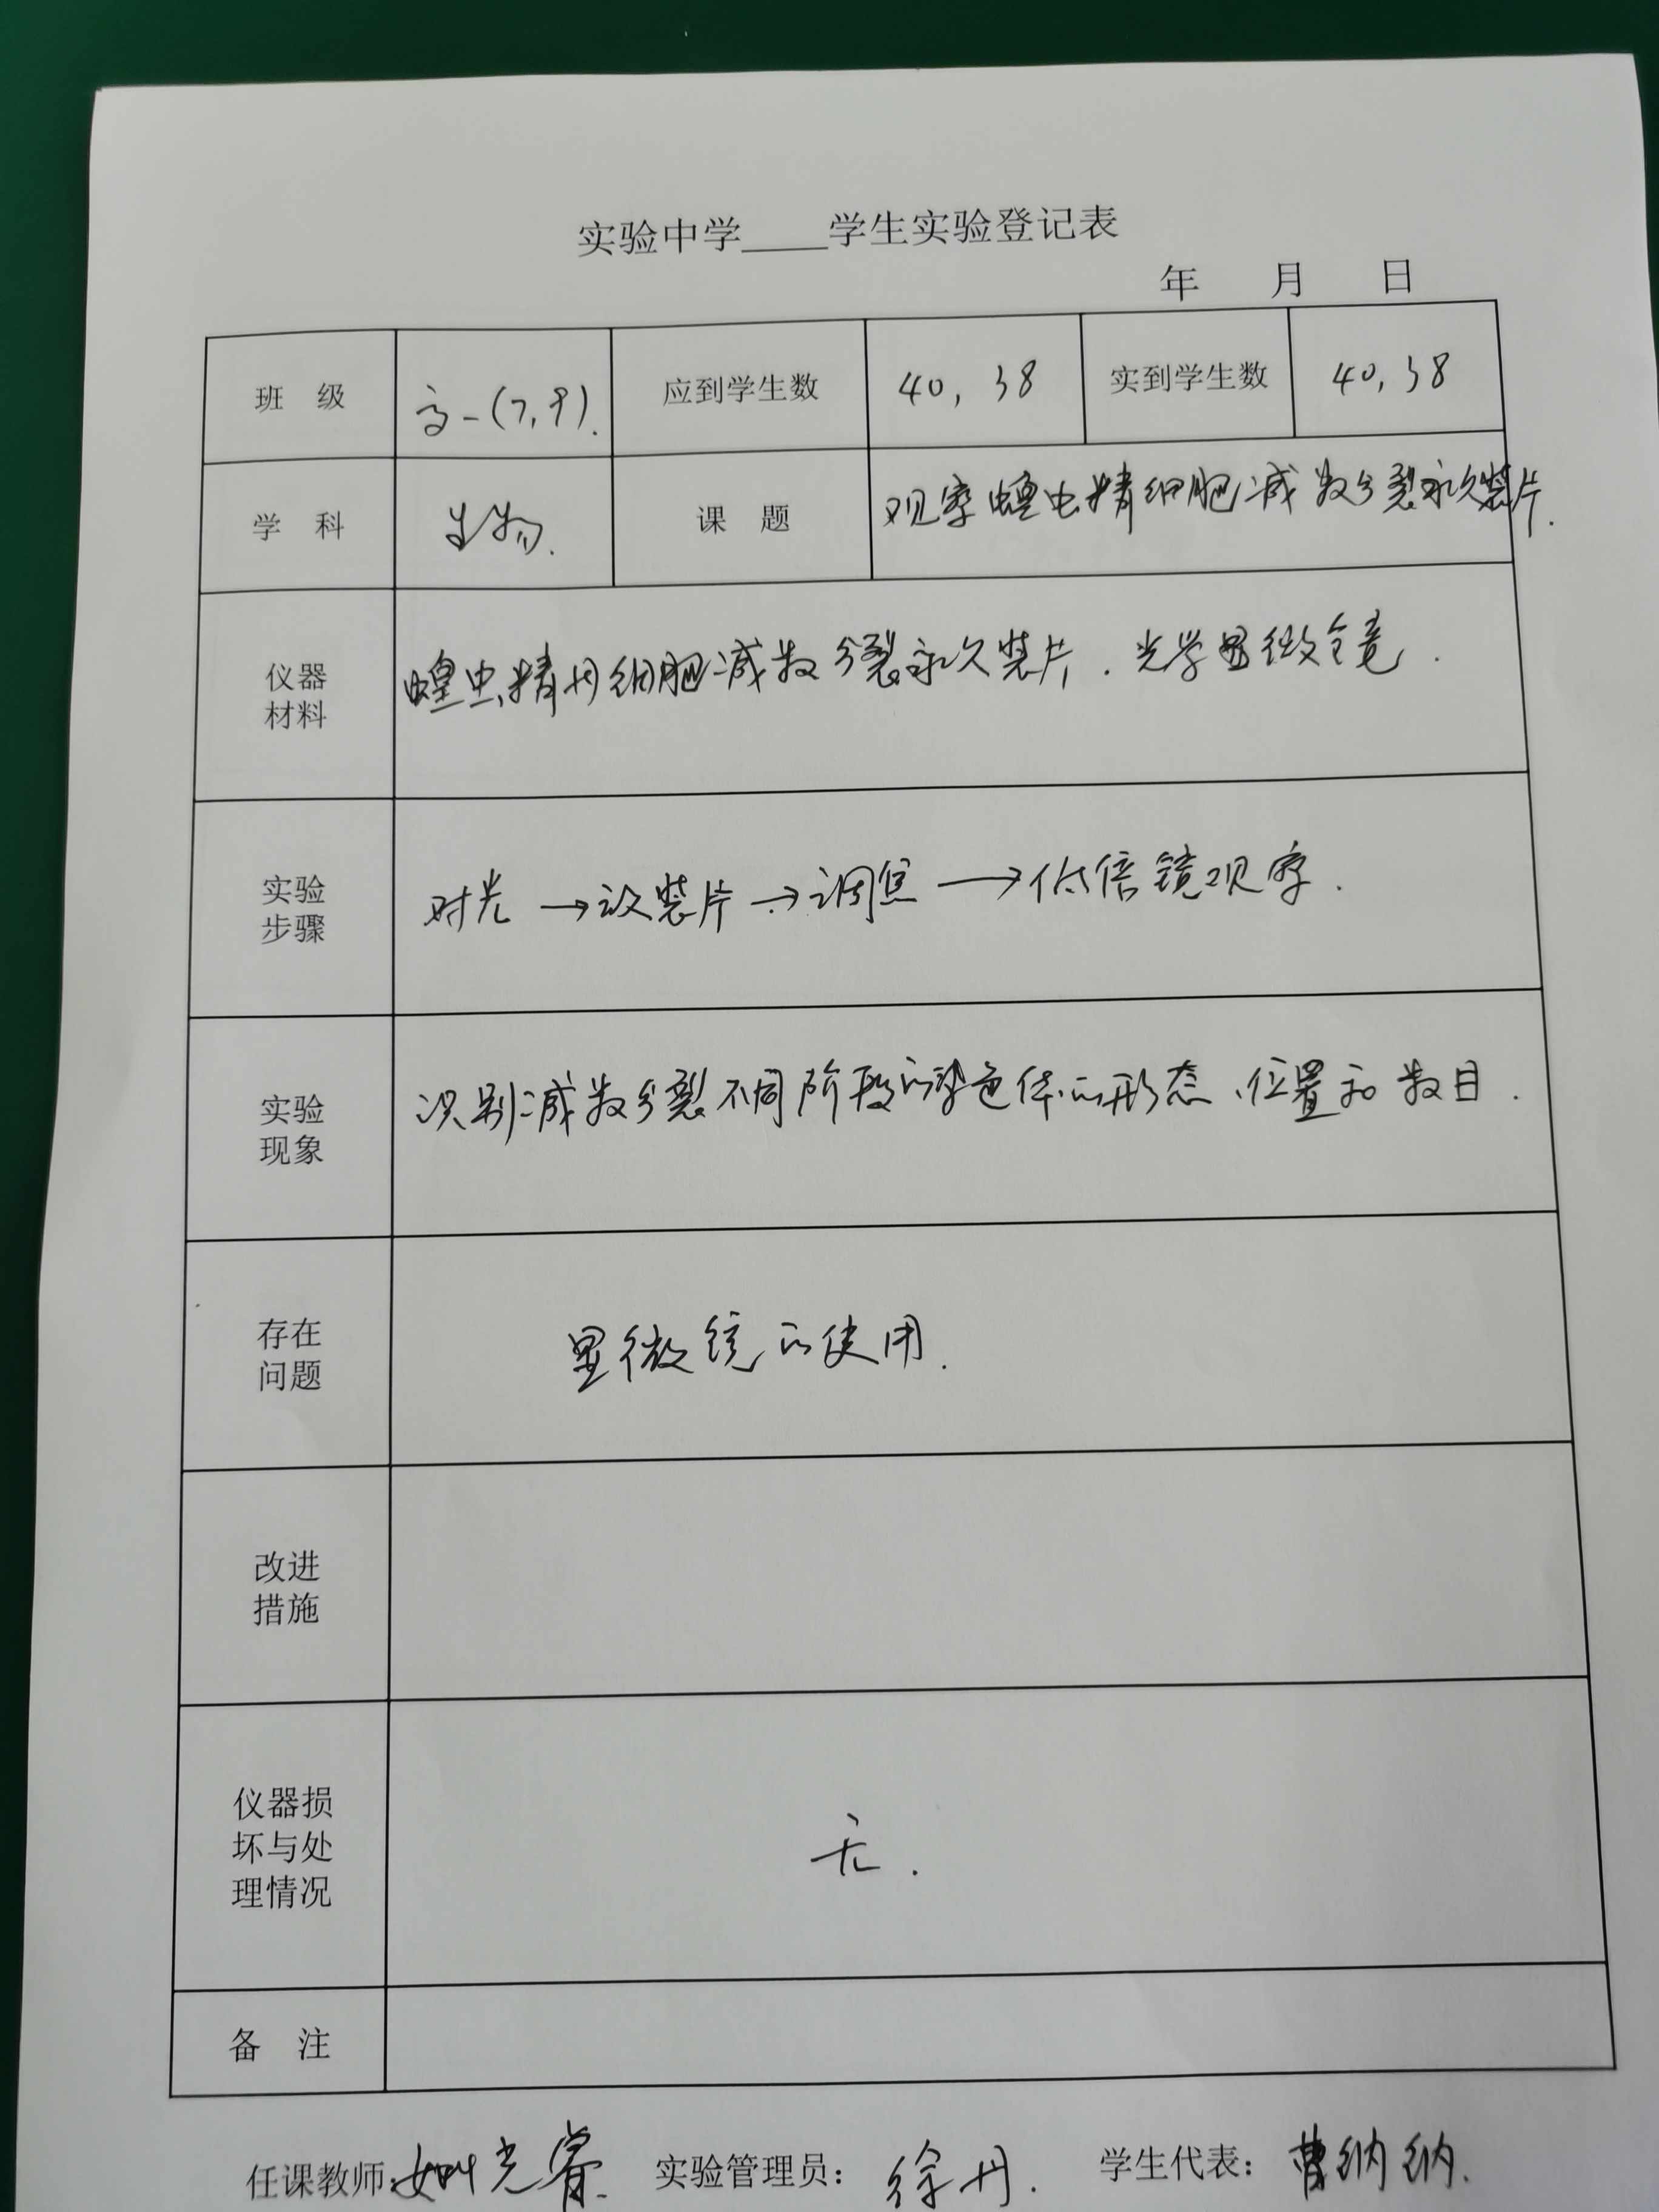 实验中学____学生实验登记表
年 月 日
班 级 高一(7,9). 应到学生数 40, 38 实到学生数 40, 38
学 科 生物. 课 题 观察蝗虫精细胞减数分裂永久装片.
仪器
材料
蝗虫精母细胞减数分裂永久装片. 光学显微镜.
实验
步骤
对光→放装片→调焦→低倍镜观察.
实验
现象
识别减数分裂不同阶段的染色体的形态、位置和数目.
存在
问题
显微镜的使用.
改进
措施
仪器损
坏与处
理情况
无.
备 注
任课教师: 光睿 实验管理员: 徐丹. 学生代表: 曹纳纳.